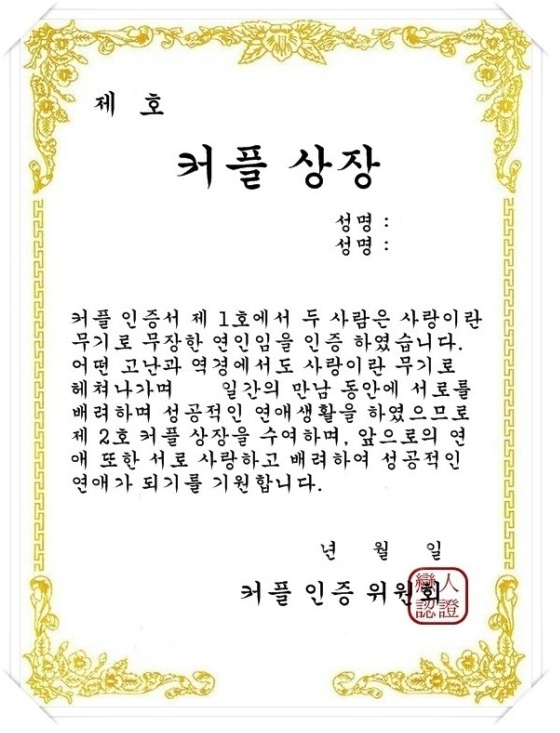 제 호
커플 상장
성명 :
성명 :
커플 인증서 제 1호에서 두 사람은 사랑이란
무기로 무장한 연인임을 인증 하였습니다.
어떤 고난과 역경에서도 사랑이란 무기로
헤쳐나가며 일간의 만남 동안에 서로를
배려하며 성공적인 연애생활을 하였으므로
제 2호 커플 상장을 수여하며, 앞으로의 연
애 또한 서로 사랑하고 배려하여 성공적인
연애가 되기를 기원합니다.
년 월 일
커플 인증 위원회
戀人
認證